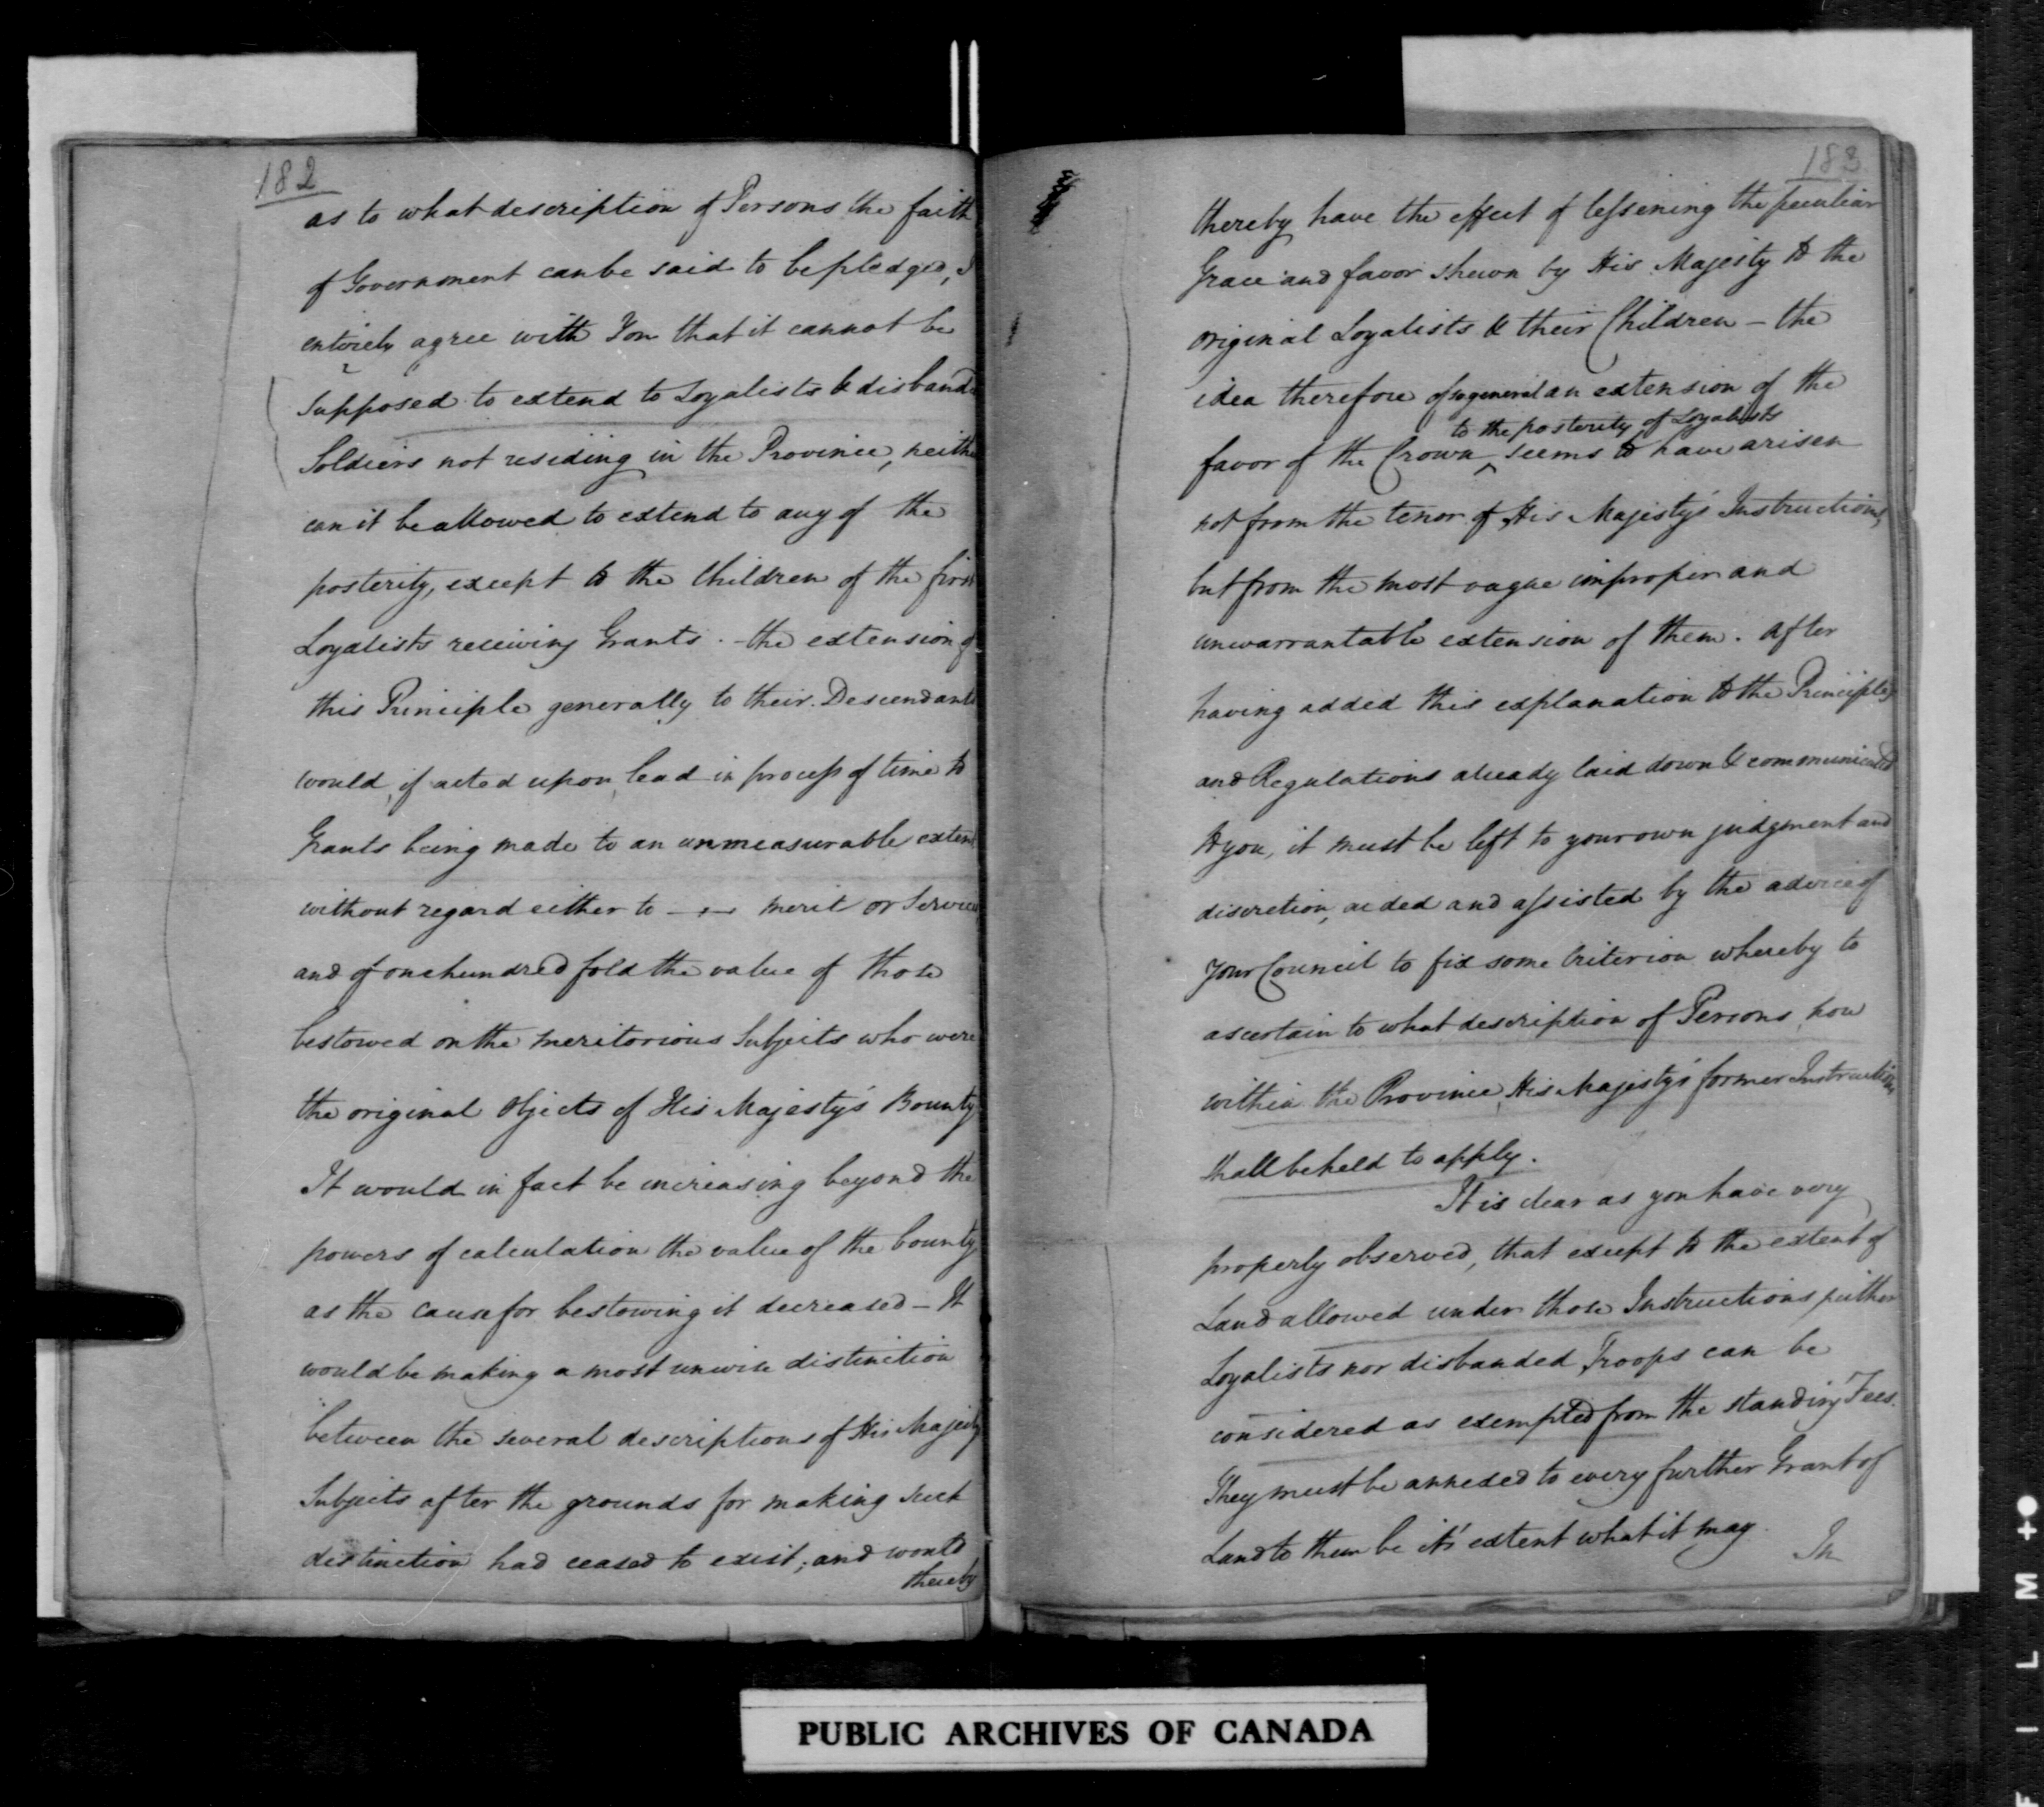 182
as to what description of Persons the faith
of Government can be said to be pledged, I
entirely agree with You that it cannot be
supposed to extend to Loyalists & disband
Soldiers not residing in the Province, neithe
can it be allowed to extend to any of the
posterity, except to the Children of the first
Loyalists receiving Grants. - the extension of
this Principle generally to their Descendants
would, if acted upon, lead in process of time to
Grants being made to an unmeasurable extent
without regard either to — merit or Service
and of one hundred fold the value of those
bestowed on the meritorious Subjects who were
the original Objects of His Majesty's Bounty
It would in fact be increasing beyond the
powers of calculation the value of the bounty
as the cause for bestowing it decreased - It
would be making a most unwise distinction
between the several descriptions of His Majesty
Subjects after the grounds for making such
distinction had ceased to exist; and would
thereby
183
thereby have the effect of lessening the peculiar
Grace and favor shewn by His Majesty to the
original Loyalists & their Children - the
idea therefore of so general an extension of the
to the posterity of Loyalists
favor of the Crown ^ seems to have arisen
not from the tenor of His Majesty's Instructions,
but from the most vague improper and
unwarrantable extension of them. After
having added this explanation to the Principles
and Regulations already laid down & communicated
to you, it must be left to your own judgment and
discretion, aided and assisted by the advice of
your Council to fix some Criterion whereby to
ascertain to what description of Persons now
within the Province, His Majesty's former Instructions
shall be held to apply.
It is clear as you have very
properly observed, that except to the extent of
Land allowed under those Instructions neither
Loyalists nor disbanded Troops can be
considered as exempted from the standing Fees.
They must be annexed to every further Grant of
Land to them be it's extent what it may.
In
PUBLIC ARCHIVES OF CANADA
F I L M